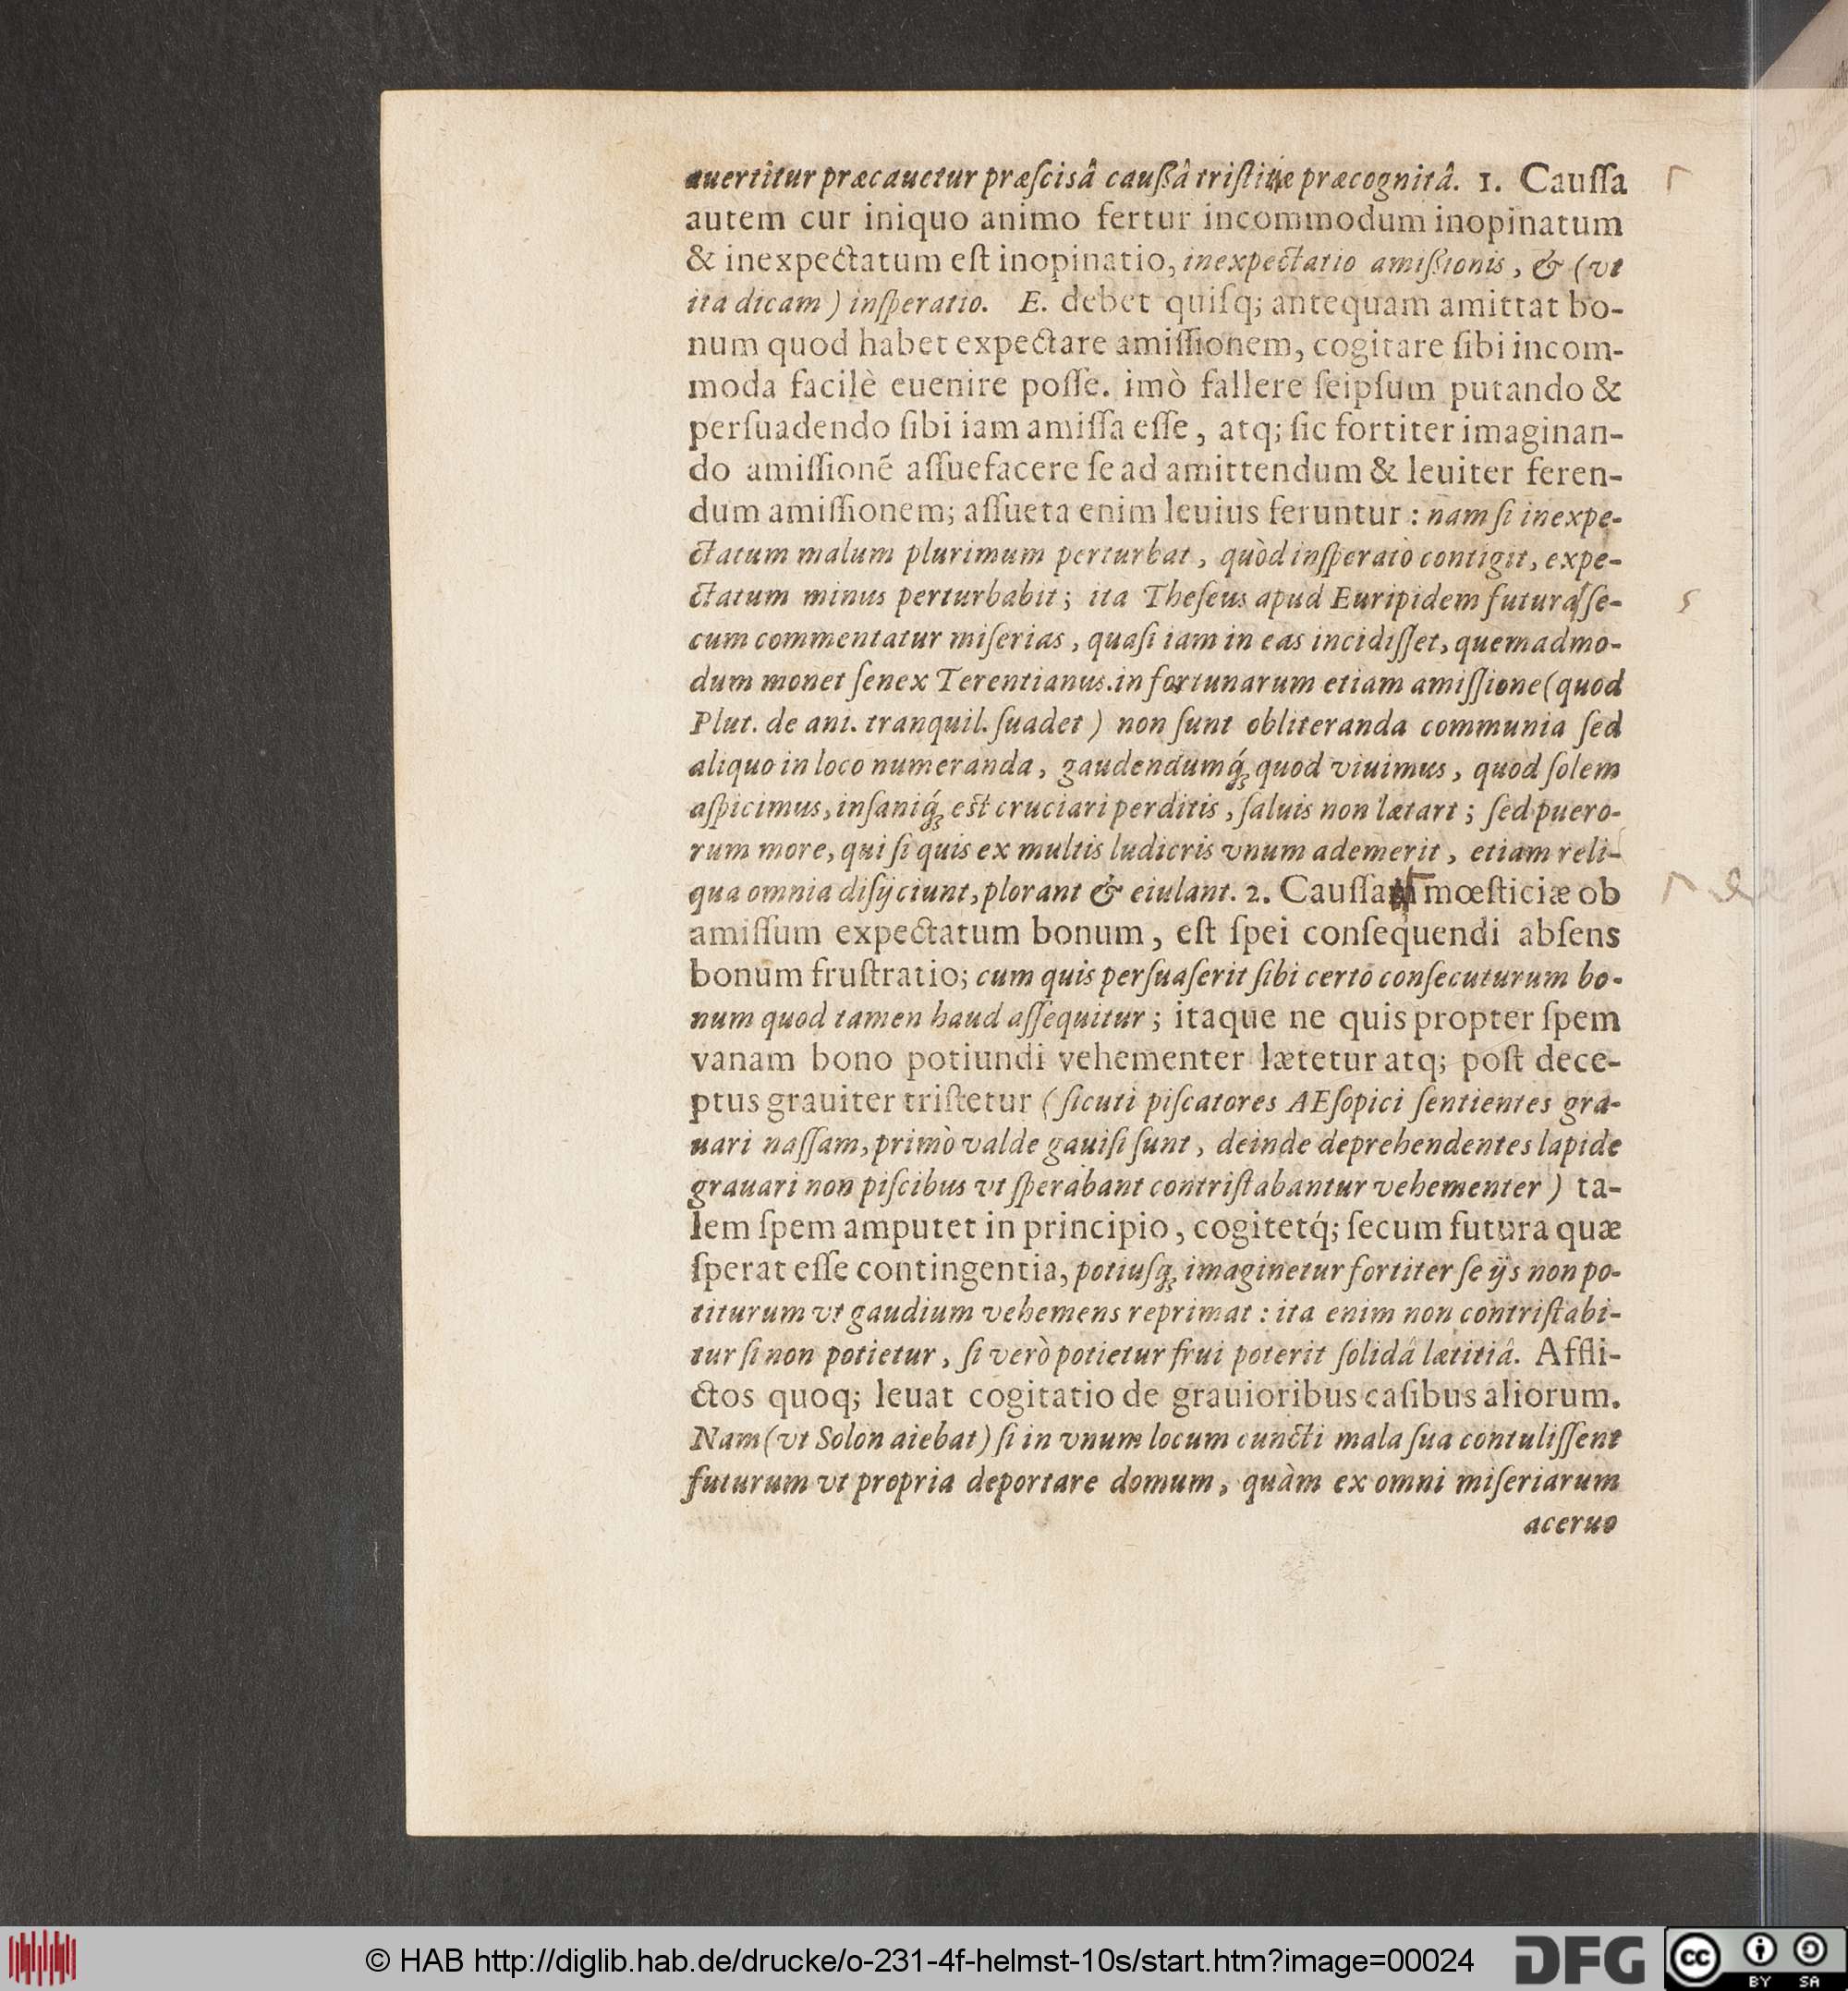 auertitur præcauetur præſcisâ caußâ triſtitiæ præcognitâ. 1. Cauſſa
autem cur iniquo animo fertur incommodum inopinatum
& inexpectatum eſt inopinatio, inexpectatio amißionis, & (vt
ita dicam) inſperatio. E. debet quiſq; antequam amittat bo-
num quod habet expectare amiſſionem, cogitare ſibi incom-
moda facilè euenire poſſe. imò fallere ſeipſum putando &
perſuadendo ſibi iam amiſſa eſſe, atq; ſic fortiter imaginan-
do amiſſionē aſſuefacere ſe ad amittendum & leuiter feren-
dum amiſſionem; aſſueta enim leuius feruntur: nam ſi inexpe-
ctatum malum plurimum perturbat, quòd inſperatò contigit, expe-
ctatum minus perturbabit; ita Theſeus apud Euripidem futura ſe-
cum commentatur miſerias, quaſi iam in eas incidiſſet, quemadmo-
dum monet ſenex Terentianus. in fortunarum etiam amiſſione (quod
Plut. de ani. tranquil. ſuadet) non ſunt obliteranda communia ſed
aliquo in loco numeranda, gaudendumq́; quod viuimus, quod ſolem
aſpicimus, inſaniq́; eſt cruciari perditis, ſaluis non lætari; ſed puero-
rum more, qui ſi quis ex multis ludicris vnum ademerit, etiam reli-
qua omnia diſijciunt, plorant & eiulant. 2. Cauſſa mœſticiæ ob
amiſſum expectatum bonum, eſt ſpei conſequendi abſens
bonum fruſtratio; cum quis perſuaſerit ſibi certò conſecuturum bo-
num quod tamen haud aſſequitur; itaque ne quis propter ſpem
vanam bono potiundi vehementer lætetur atq; poſt dece-
ptus grauiter triſtetur (ſicuti piſcatores AEſopici ſentientes gra-
uari naſſam, primò valde gauiſi ſunt, deinde deprehendentes lapide
grauari non piſcibus vt ſperabant contriſtabantur vehementer) ta-
lem ſpem amputet in principio, cogitetq́; ſecum futura quæ
ſperat eſſe contingentia, potiuſq; imaginetur fortiter ſe ijs non po-
titurum vt gaudium vehemens reprimat: ita enim non contriſtabi-
tur ſi non potietur, ſi verò potietur frui poterit ſolidâ lætitiâ. Affli-
ctos quoq; leuat cogitatio de grauioribus caſibus aliorum.
Nam (vt Solon aiebat) ſi in vnum locum cuncti mala ſua contuliſſent
futurum vt propria deportare domum, quàm ex omni miſeriarum
aceruo
© HAB http://diglib.hab.de/drucke/o-231-4f-helmst-10s/start.htm?image=00024
DFG
cc BY SA